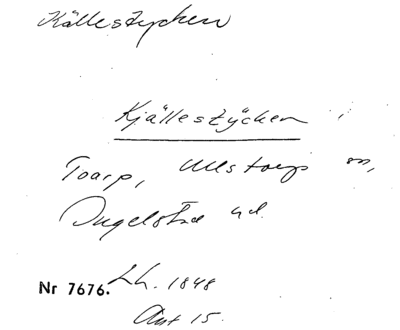 Källestycken
Kjällestÿcken i
Toarp, Ullstorps sn,
Ingelstad hd.
Nr 7676. Lh. 1848
Akt 15.